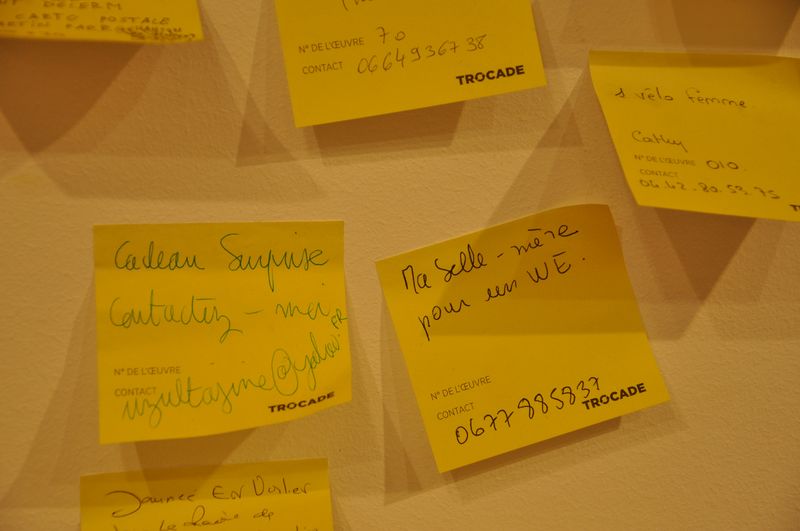 CARTO POSTALE
N° DE L'ŒUVRE 70
CONTACT 0664936738
TROCADE
1 vélo femme
Cathy
N° DE L'ŒUVRE 010.
CONTACT
04.42.80.53.75
Cadeau Surprise
Contactez-moi
N° DE L'ŒUVRE
CONTACT
TROCADE
Ma belle-mère
pour un WE.
N° DE L'ŒUVRE
CONTACT
0677885837
TROCADE
de